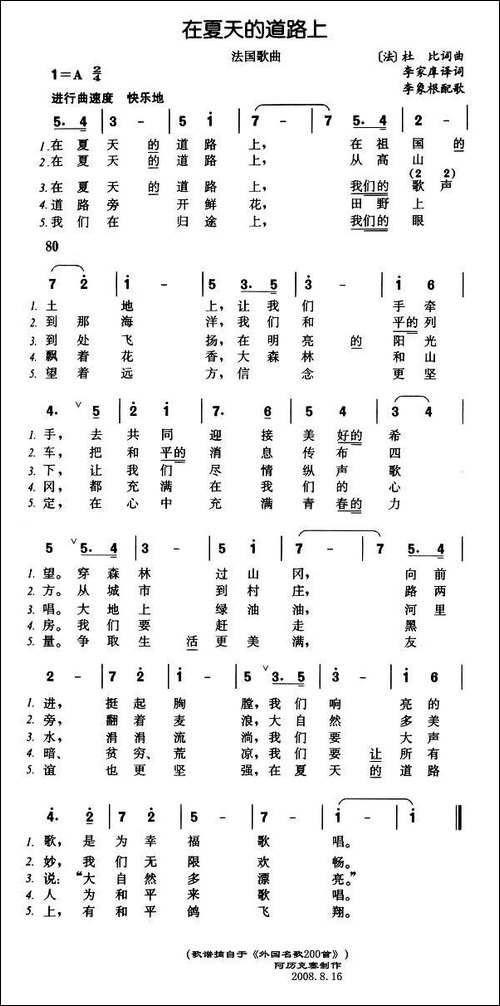 在夏天的道路上
法国歌曲
〔法〕杜 比词曲
1=A 2/4
李家庠译词
李象根配歌
进行曲速度 快乐地
5. 4 | 3 - | 5 i | 7 - | 7 5. 4 | 2 -
1.在夏天的道路上，在祖国的
2.在夏天的道路上，从高山
(2 2)
3.在夏天的道路上，我们的歌声
4.道路旁开鲜花，田野上
5.我们在归途上，我们的眼
80
7 2 | i - | 5 3. 5 | 3 - | i 6
1.土地上，让我们手牵
2.到那海洋，我们和平的列
3.到处飞扬，在明亮的阳光
4.飘着花香，大森林和山
5.望着远方，信念更坚
4. ∨ 5 | 2 i | 7. 6 | 5 - | 3 4
1.手，去共同迎接美好的希
2.车，把和平的消息传布四
3.下，让我们尽情纵声歌
4.冈，都充满在我们的心
5.定，在心中充满青春的力
5 ∨ 5. 4 | 3 - | 5 i | 7 - | 7 5. 4
1.望。穿森林过山冈，向前
2.方。从城市到村庄，路两
3.唱。大地上绿油油，河里
4.房。我们要赶走黑
5.量。争取生活更美满，友
2 - | 7 2 | i - | 5 ∨ 3. 5 | 3 - | i 6
1.进，挺起胸膛，我们响亮的
2.旁，翻着麦浪，大自然多美
3.水，涓涓流淌，我们要大声
4.暗、贫穷、荒凉，我们要让所有
5.谊也更坚强，在夏天的道路
4. 2 | 7 2 | 5 - | 7 - | i - | i
1.歌，是为幸福歌唱。
2.妙，我们无限欢畅。
3.说：“大自然多漂亮。”
4.人为和平来歌唱。
5.上，有和平鸽飞翔。
(歌谱摘自于《外国名歌200首》)
阿历克塞制作
2008.8.16